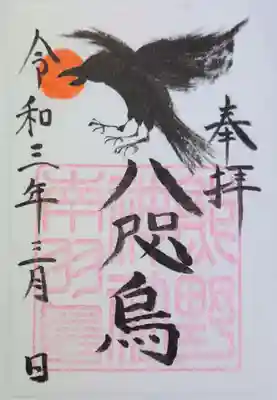 奉拝
八咫烏
令和三年三月 日